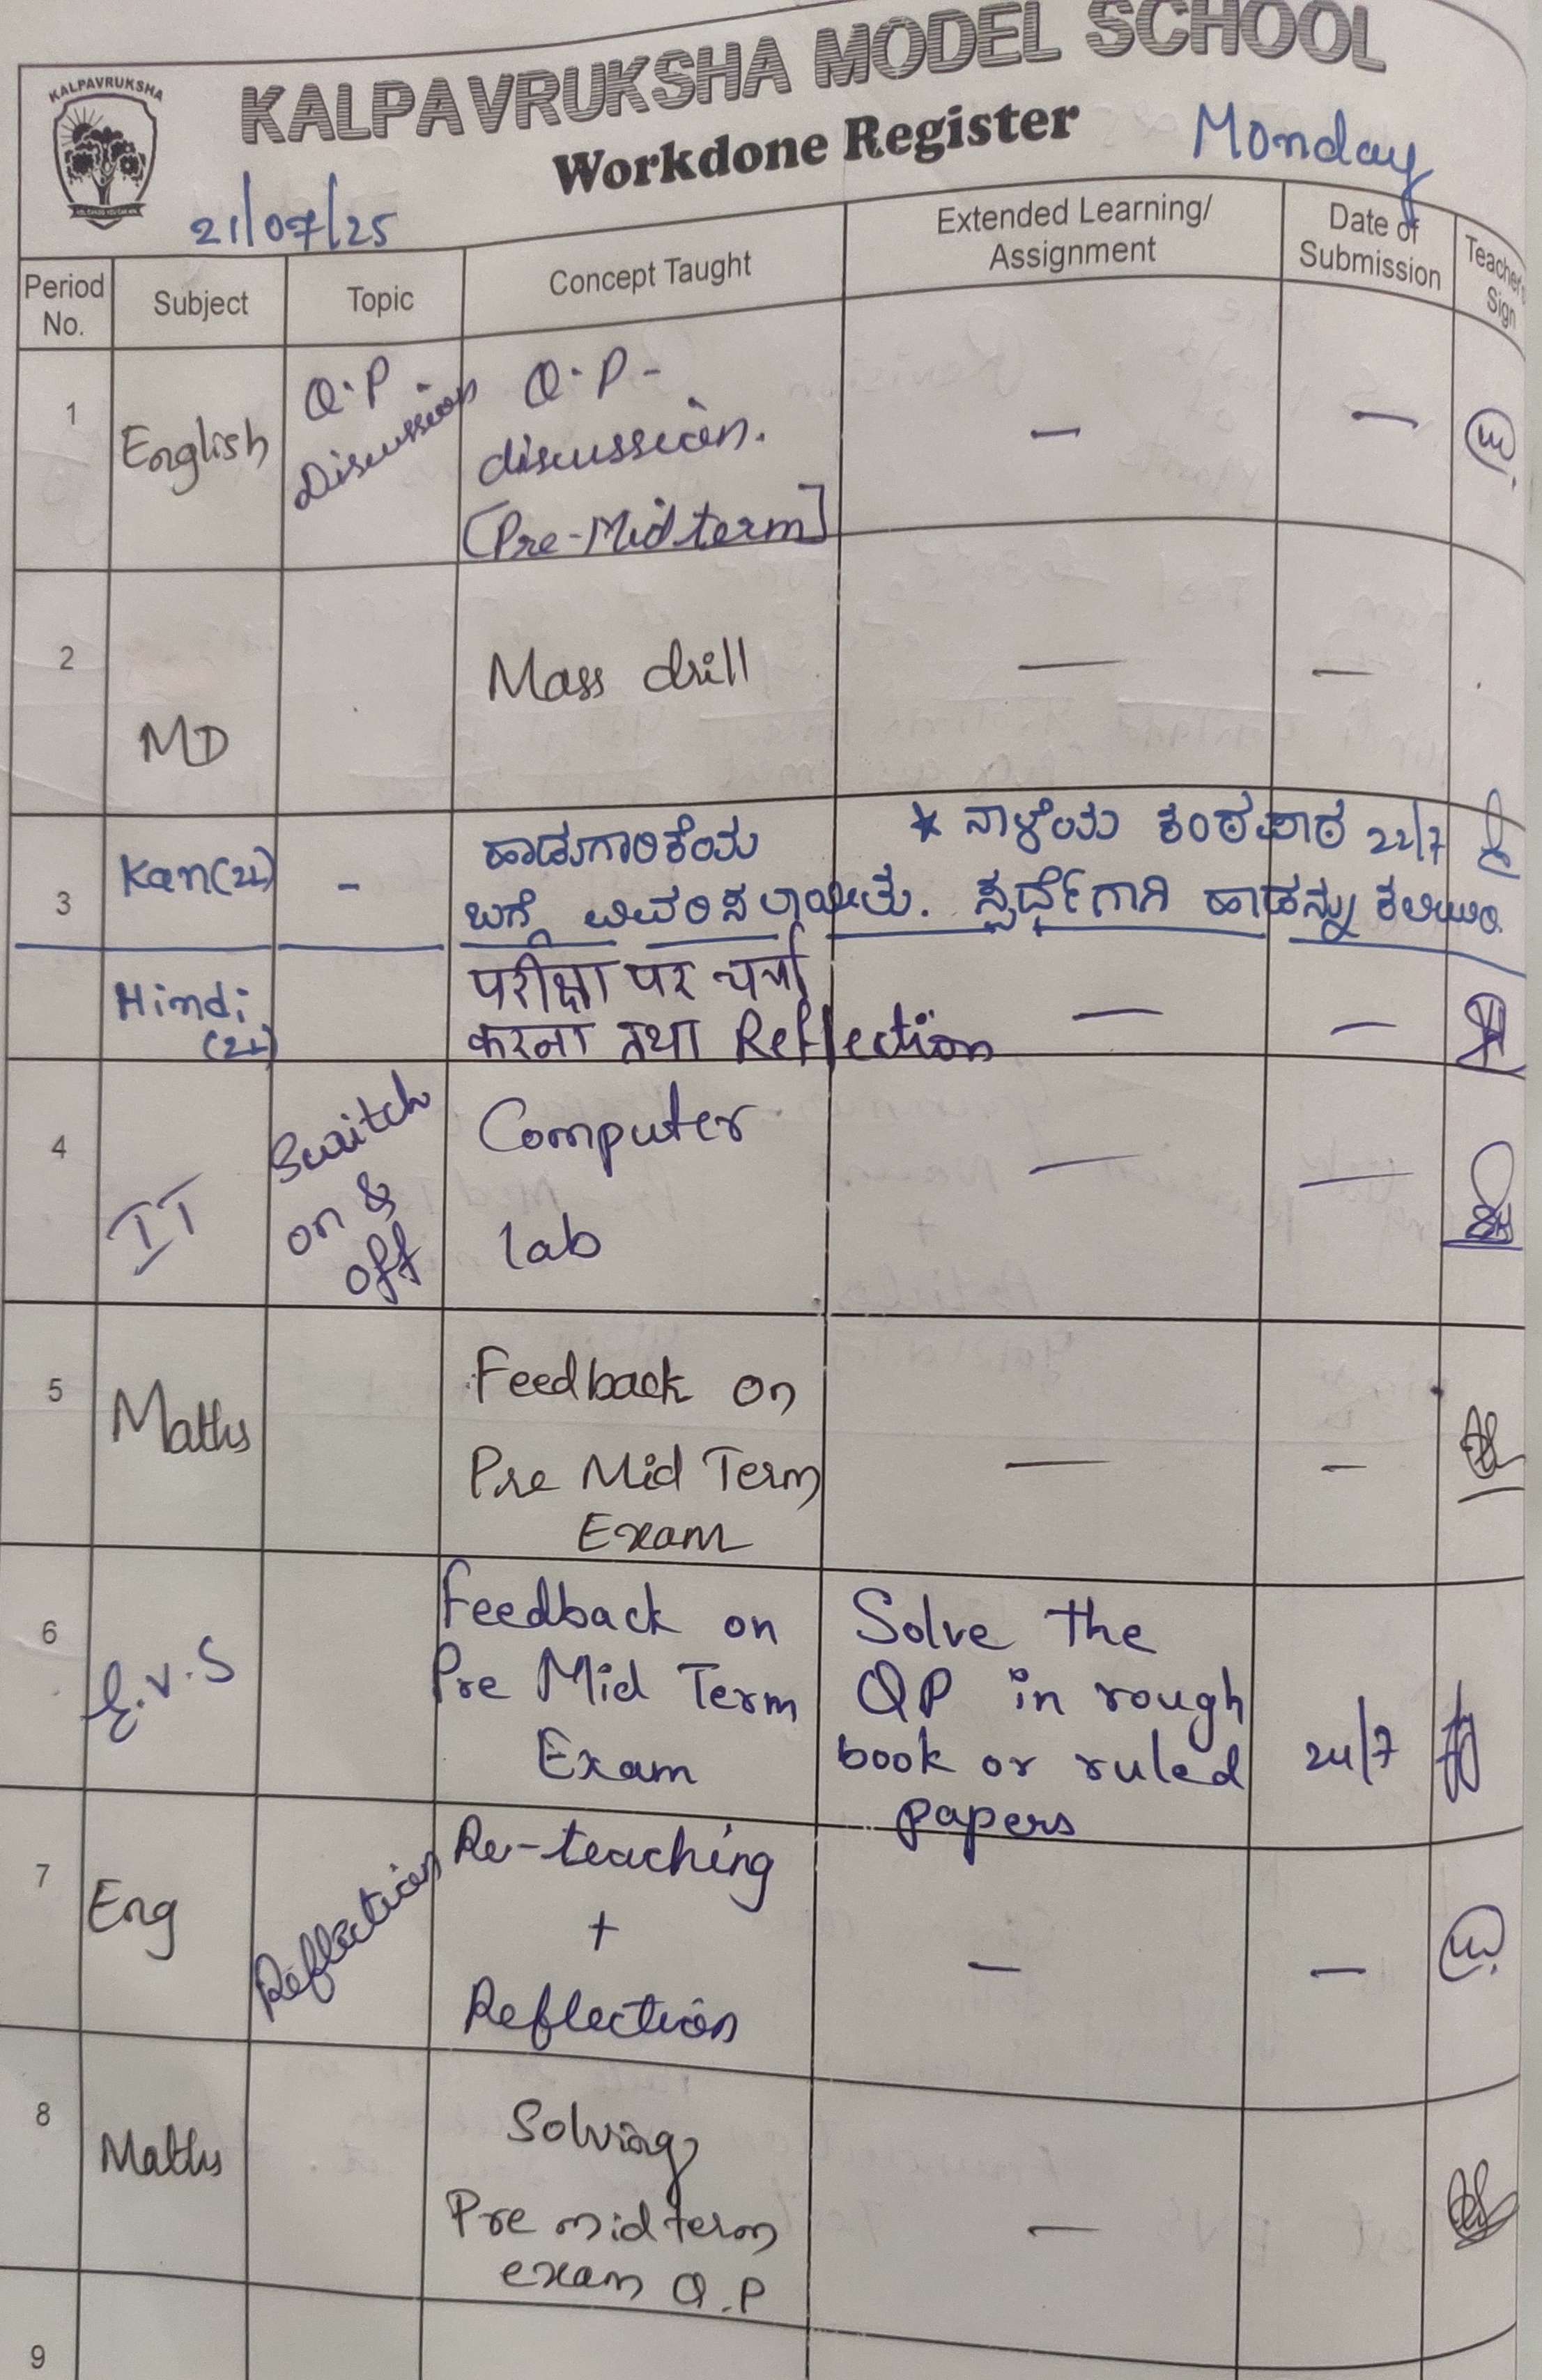 KALPAVRUKSHA
KALPAVRUKSHA MODEL SCHOOL
Workdone Register
Monday
21/07/25
Period No.
Subject
Topic
Concept Taught
Extended Learning/
Assignment
Date of
Submission
Teacher's
Sign
1
English
Q.P
Discussion
Q.P -
discussion.
[Pre-Midterm]
—
—
2
MD
Mass drill
—
—
3
Kan(2L)
-
ಹಾಡುಗಾರಿಕೆಯ
ಬಗ್ಗೆ ವಿವರಿಸಲಾಯಿತು.
* ನಾಳೆಯ ಕಂಠಪಾಠ 22/7
ಸ್ಪರ್ಧೆಗಾಗಿ ಹಾಡನ್ನು
Hindi
(2L)
परीक्षा पर चर्चा
करना तथा Reflection
—
—
4
IT
Switch
on &
off
Computer
lab
—
—
5
Maths
Feedback on
Pre Mid Term
Exam
—
—
6
E.V.S
Feedback on
Pre Mid Term
Exam
Solve the
QP in rough
book or ruled
papers
24/7
7
Eng
Reflection
Re-teaching
+
Reflection
—
—
8
Maths
Solving
Pre midterm
exam Q.P
—
9